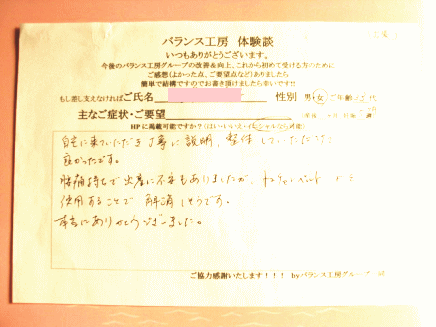 バランス工房 体験談
いつもありがとうございます。
今後のバランス工房グループの改善&向上、これから初めて受ける方のために
ご感想(よかった点、ご要望点など)ありましたら
簡単で結構ですのでお書き頂けましたら幸いです!!
もし差し支えなければご氏名 性別 男・女 ご年齢 代
主なご症状・ご要望
HPに掲載可能ですか?(はい・いいえ・イニシャルなら可能)
自宅に来ていただき丁寧に説明、整体していただけて
良かったです。
腰痛持ちで出産に不安もありましたが、
使用することで解消しそうです。
本当にありがとうございました。
ご協力感謝いたします!!! byバランス工房グループ